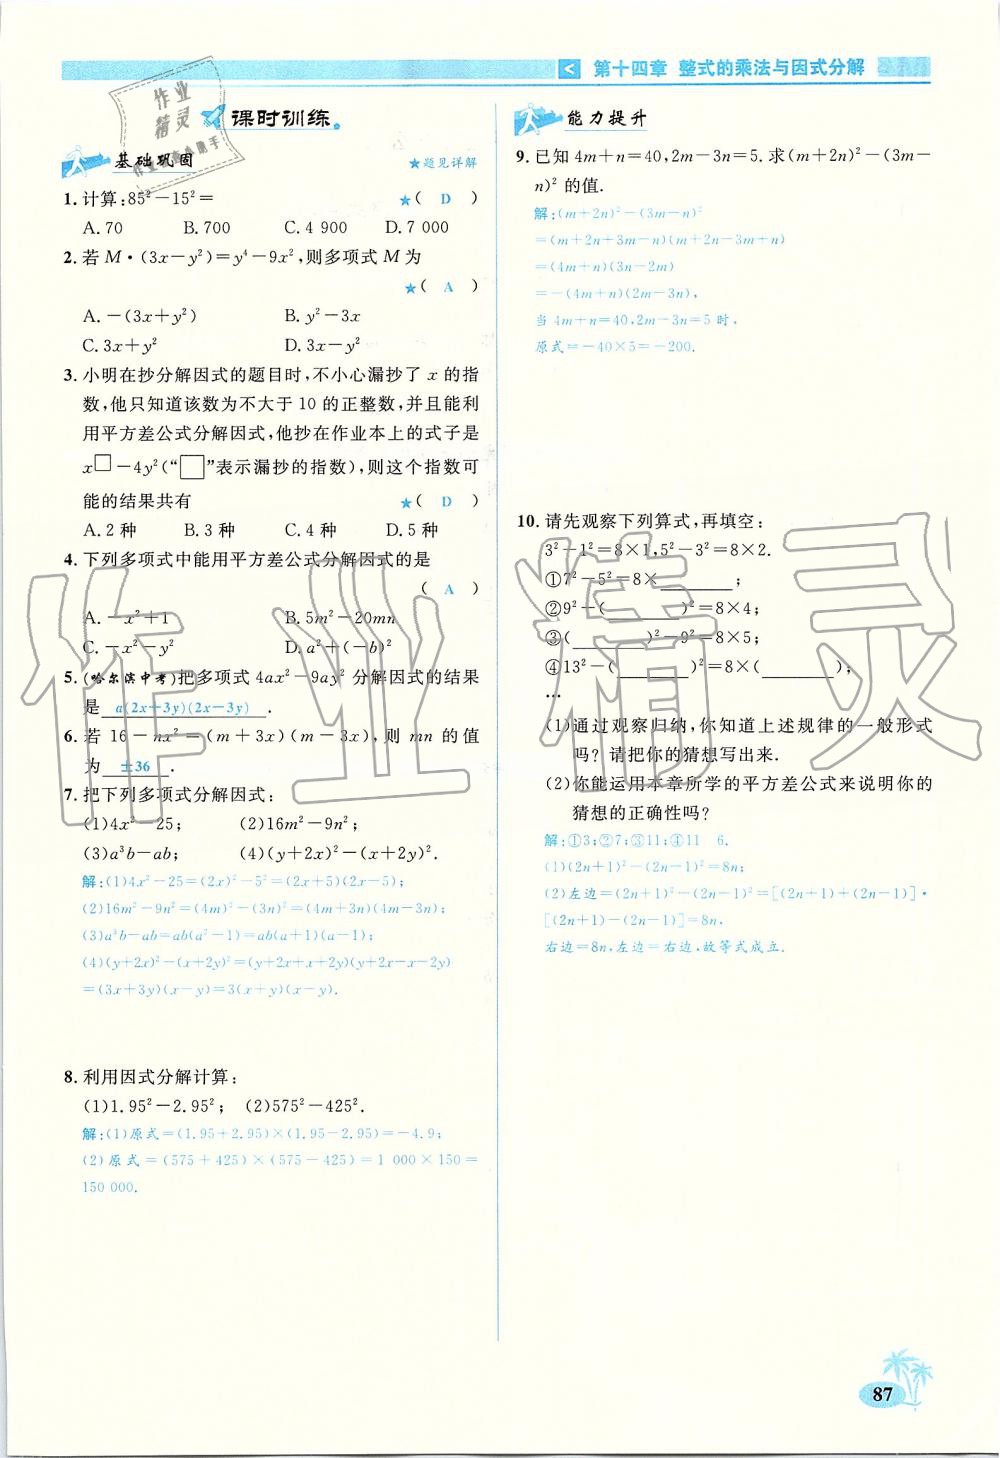 第十四章 整式的乘法与因式分解
课时训练
基础巩固 ★题见详解
1. 计算:85²-15²= ★( D )
A. 70 B. 700 C. 4 900 D. 7 000
2. 若 M·(3x-y²)=y⁴-9x²,则多项式 M 为
★( A )
A. -(3x+y²) B. y²-3x
C. 3x+y² D. 3x-y²
3. 小明在抄分解因式的题目时,不小心漏抄了 x 的指
数,他只知道该数为不大于 10 的正整数,并且能利
用平方差公式分解因式,他抄在作业本上的式子是
x□-4y²(“□”表示漏抄的指数),则这个指数可
能的结果共有 ★( D )
A. 2 种 B. 3 种 C. 4 种 D. 5 种
4. 下列多项式中能用平方差公式分解因式的是
( A )
A. -x²+1 B. 5m²-20mn
C. -x²-y² D. a²+(-b)²
5. (哈尔滨中考)把多项式 4ax²-9ay² 分解因式的结果
是 a(2x+3y)(2x-3y) .
6. 若 16-nx²=(m+3x)(m-3x),则 mn 的值
为 ±36 .
7. 把下列多项式分解因式:
(1)4x²-25; (2)16m²-9n²;
(3)a³b-ab; (4)(y+2x)²-(x+2y)².
解:(1)4x²-25=(2x)²-5²=(2x+5)(2x-5);
(2)16m²-9n²=(4m)²-(3n)²=(4m+3n)(4m-3n);
(3)a³b-ab=ab(a²-1)=ab(a+1)(a-1);
(4)(y+2x)²-(x+2y)²=(y+2x+x+2y)(y+2x-x-2y)
=(3x+3y)(x-y)=3(x+y)(x-y).
8. 利用因式分解计算:
(1)1.95²-2.95²; (2)575²-425².
解:(1)原式=(1.95+2.95)×(1.95-2.95)=-4.9;
(2)原式=(575+425)×(575-425)=1 000×150=
150 000.
能力提升
9. 已知 4m+n=40,2m-3n=5. 求(m+2n)²-(3m-
n)² 的值.
解:(m+2n)²-(3m-n)²
=(m+2n+3m-n)(m+2n-3m+n)
=(4m+n)(3n-2m)
=-(4m+n)(2m-3n),
当 4m+n=40,2m-3n=5 时,
原式=-40×5=-200.
10. 请先观察下列算式,再填空:
3²-1²=8×1,5²-3²=8×2.
①7²-5²=8×________;
②9²-(________)²=8×4;
③(________)²-9²=8×5;
④13²-(________)²=8×(________);
…
(1)通过观察归纳,你知道上述规律的一般形式
吗? 请把你的猜想写出来.
(2)你能运用本章所学的平方差公式来说明你的
猜想的正确性吗?
解:①3;②7;③11;④11 6.
(1)(2n+1)²-(2n-1)²=8n;
(2)左边=(2n+1)²-(2n-1)²=[(2n+1)+(2n-1)]·
[(2n+1)-(2n-1)]=8n,
右边=8n,左边=右边,故等式成立.
87
作业精灵
作业精灵